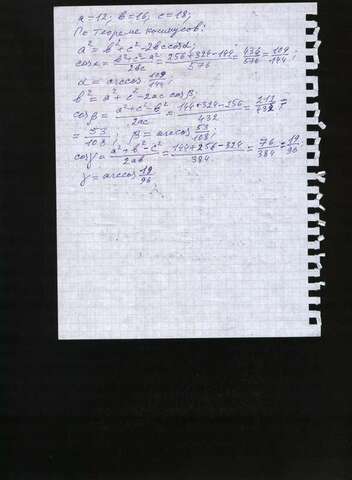 a = 12; b = 16; c = 18;
По теореме косинусов:
a² = b² + c² - 2bc cosα;
cosα = (b² + c² - a²)/2bc = (256 + 324 - 144)/576 = 436/576 = 109/144;
α = arccos 109/144;
b² = a² + c² - 2ac cosβ;
cosβ = (a² + c² - b²)/2ac = (144 + 324 - 256)/432 = 212/432 =
= 53/108; β = arccos 53/108;
cosγ = (a² + b² - c²)/2ab = (144 + 256 - 324)/384 = 76/384 = 19/96
γ = arccos 19/96